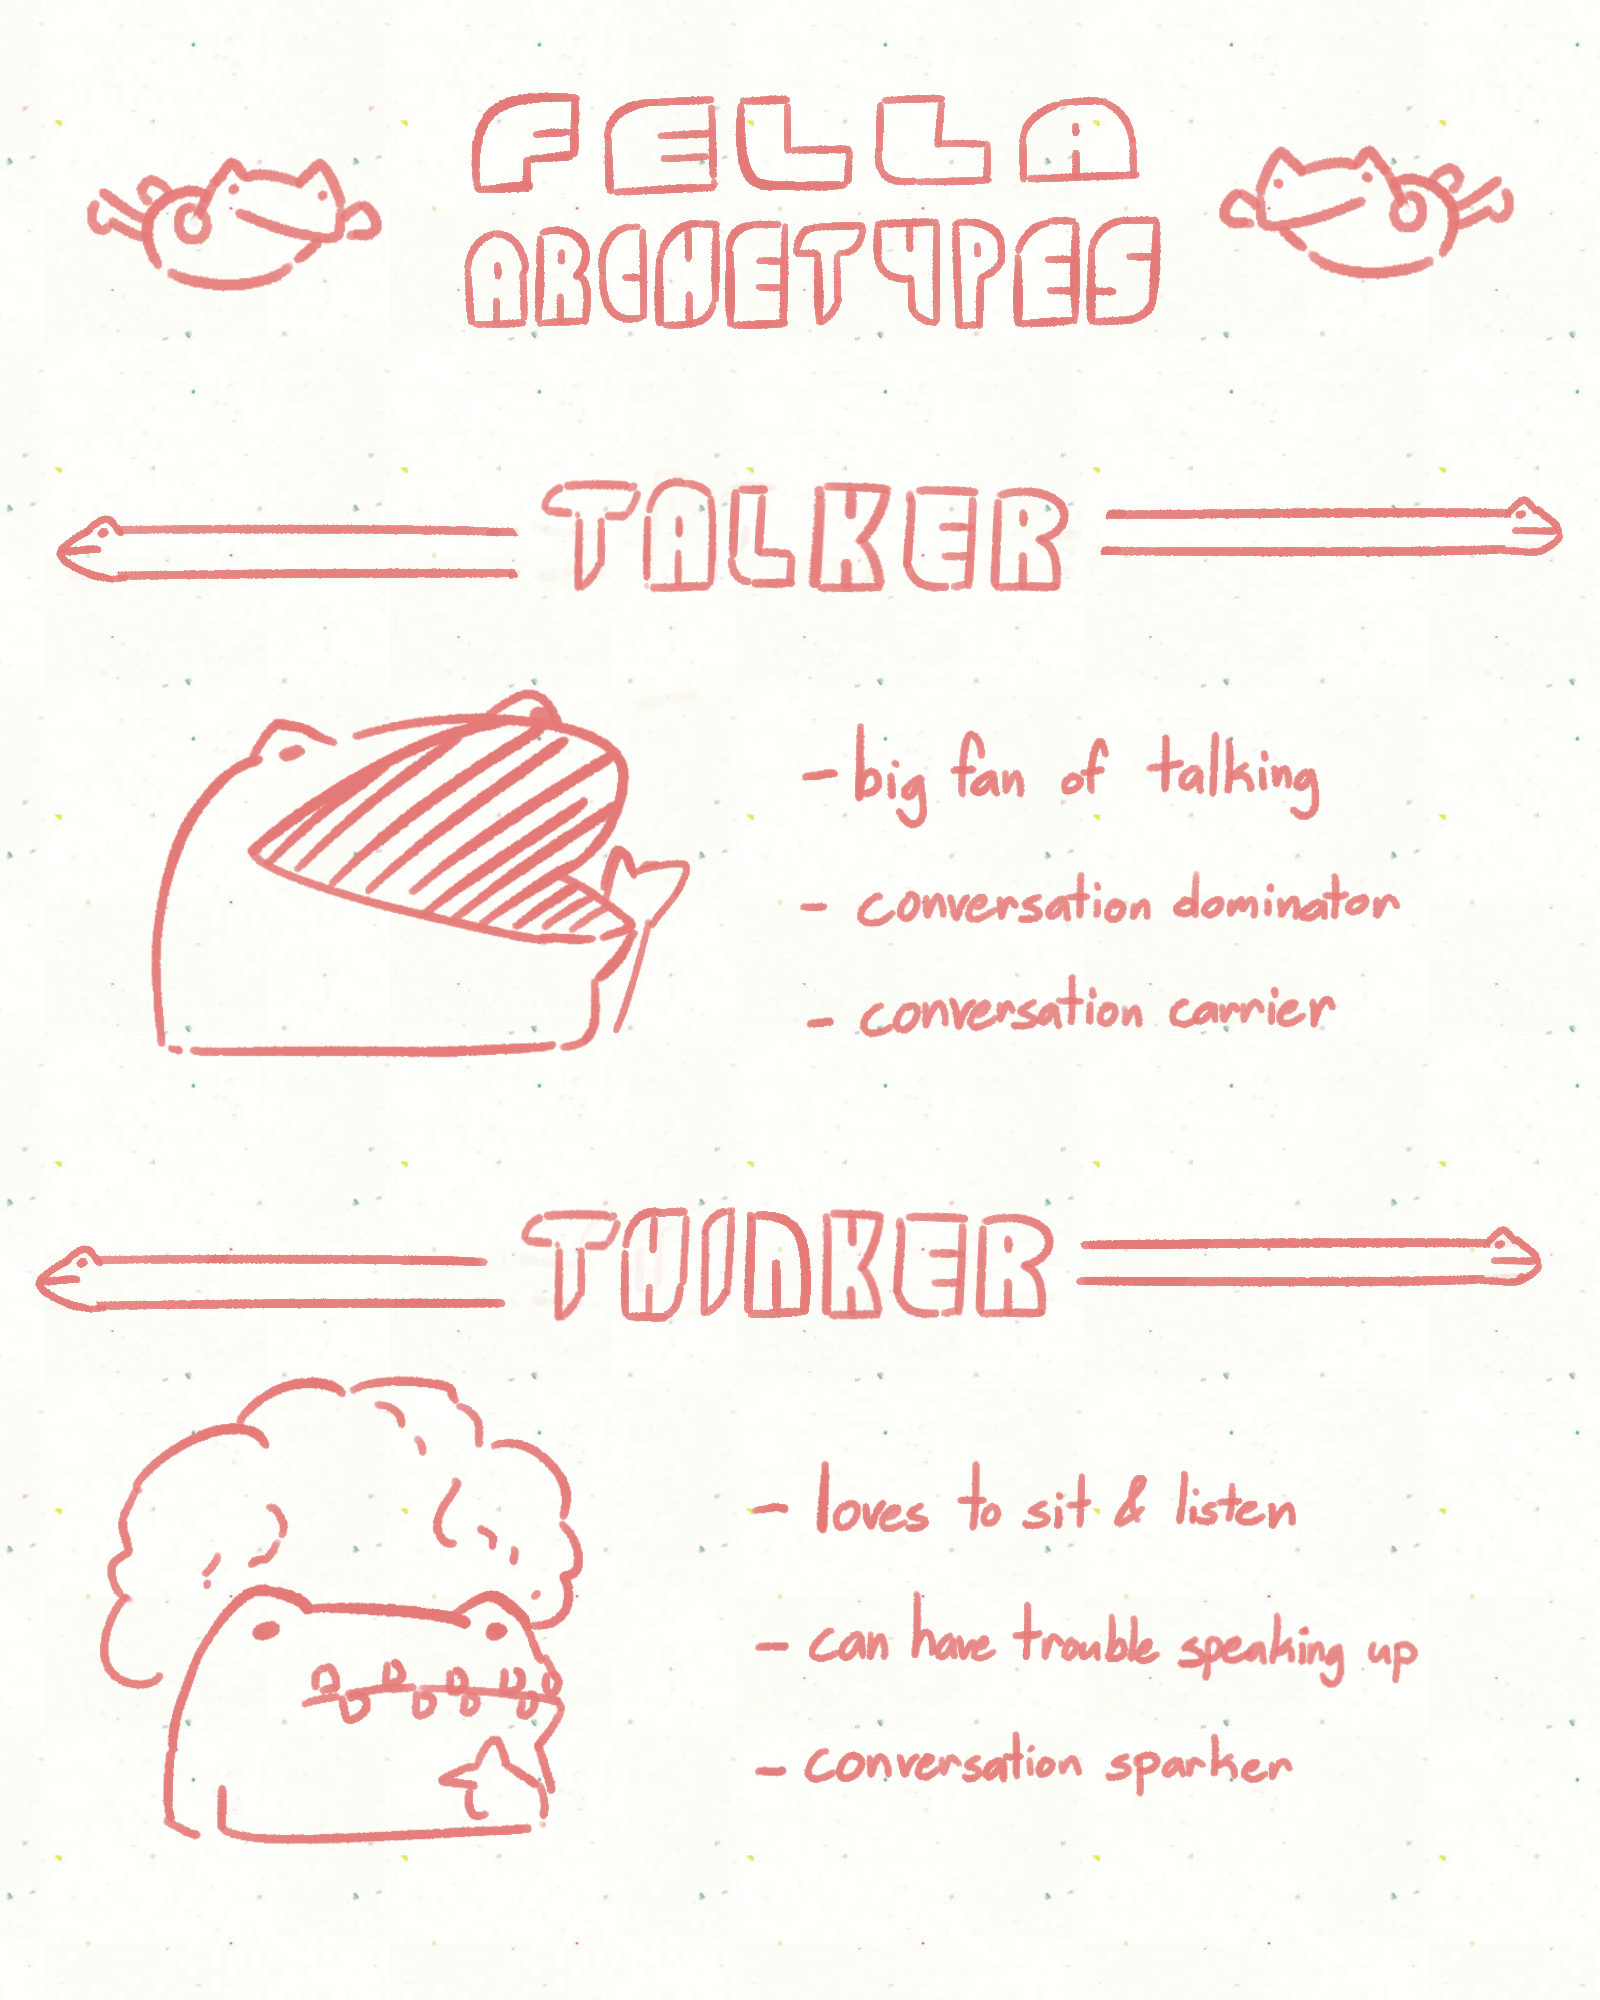 FELLA
ARCHETYPES
TALKER
- big fan of talking
- conversation dominator
- conversation carrier
THINKER
- loves to sit & listen
- can have trouble speaking up
- conversation sparker